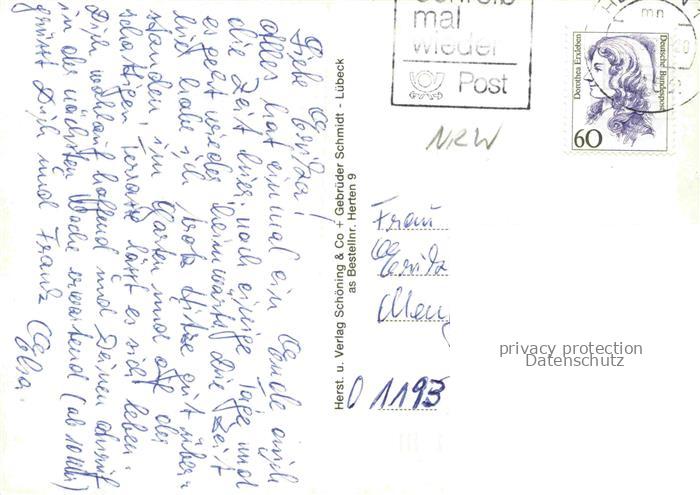 Liebe Erika!
Alles hat einmal ein Ende auch
die Zeit hier, noch einige Tage und
es geht wieder heimwärts, die Zeit
hier habe ich trotz Hitze gut über-
standen, im Garten und auf der
schattigen Terrasse lässt es sich leben.
Dich wohlauf hoffend und Deinen Anruf
in der nächsten Woche erwartend (ab 10 Uhr)
grüsst Dich und Frank Elsa.
Herst. u. Verlag Schöning & Co + Gebrüder Schmidt - Lübeck
as Bestellnr. Herten 9
Schreib
mal
wieder
Post
mn
Dorothea Erxleben
Deutsche Bundespost
60
NRW
Frau
Erika
Meng
O 1193
privacy protection
Datenschutz